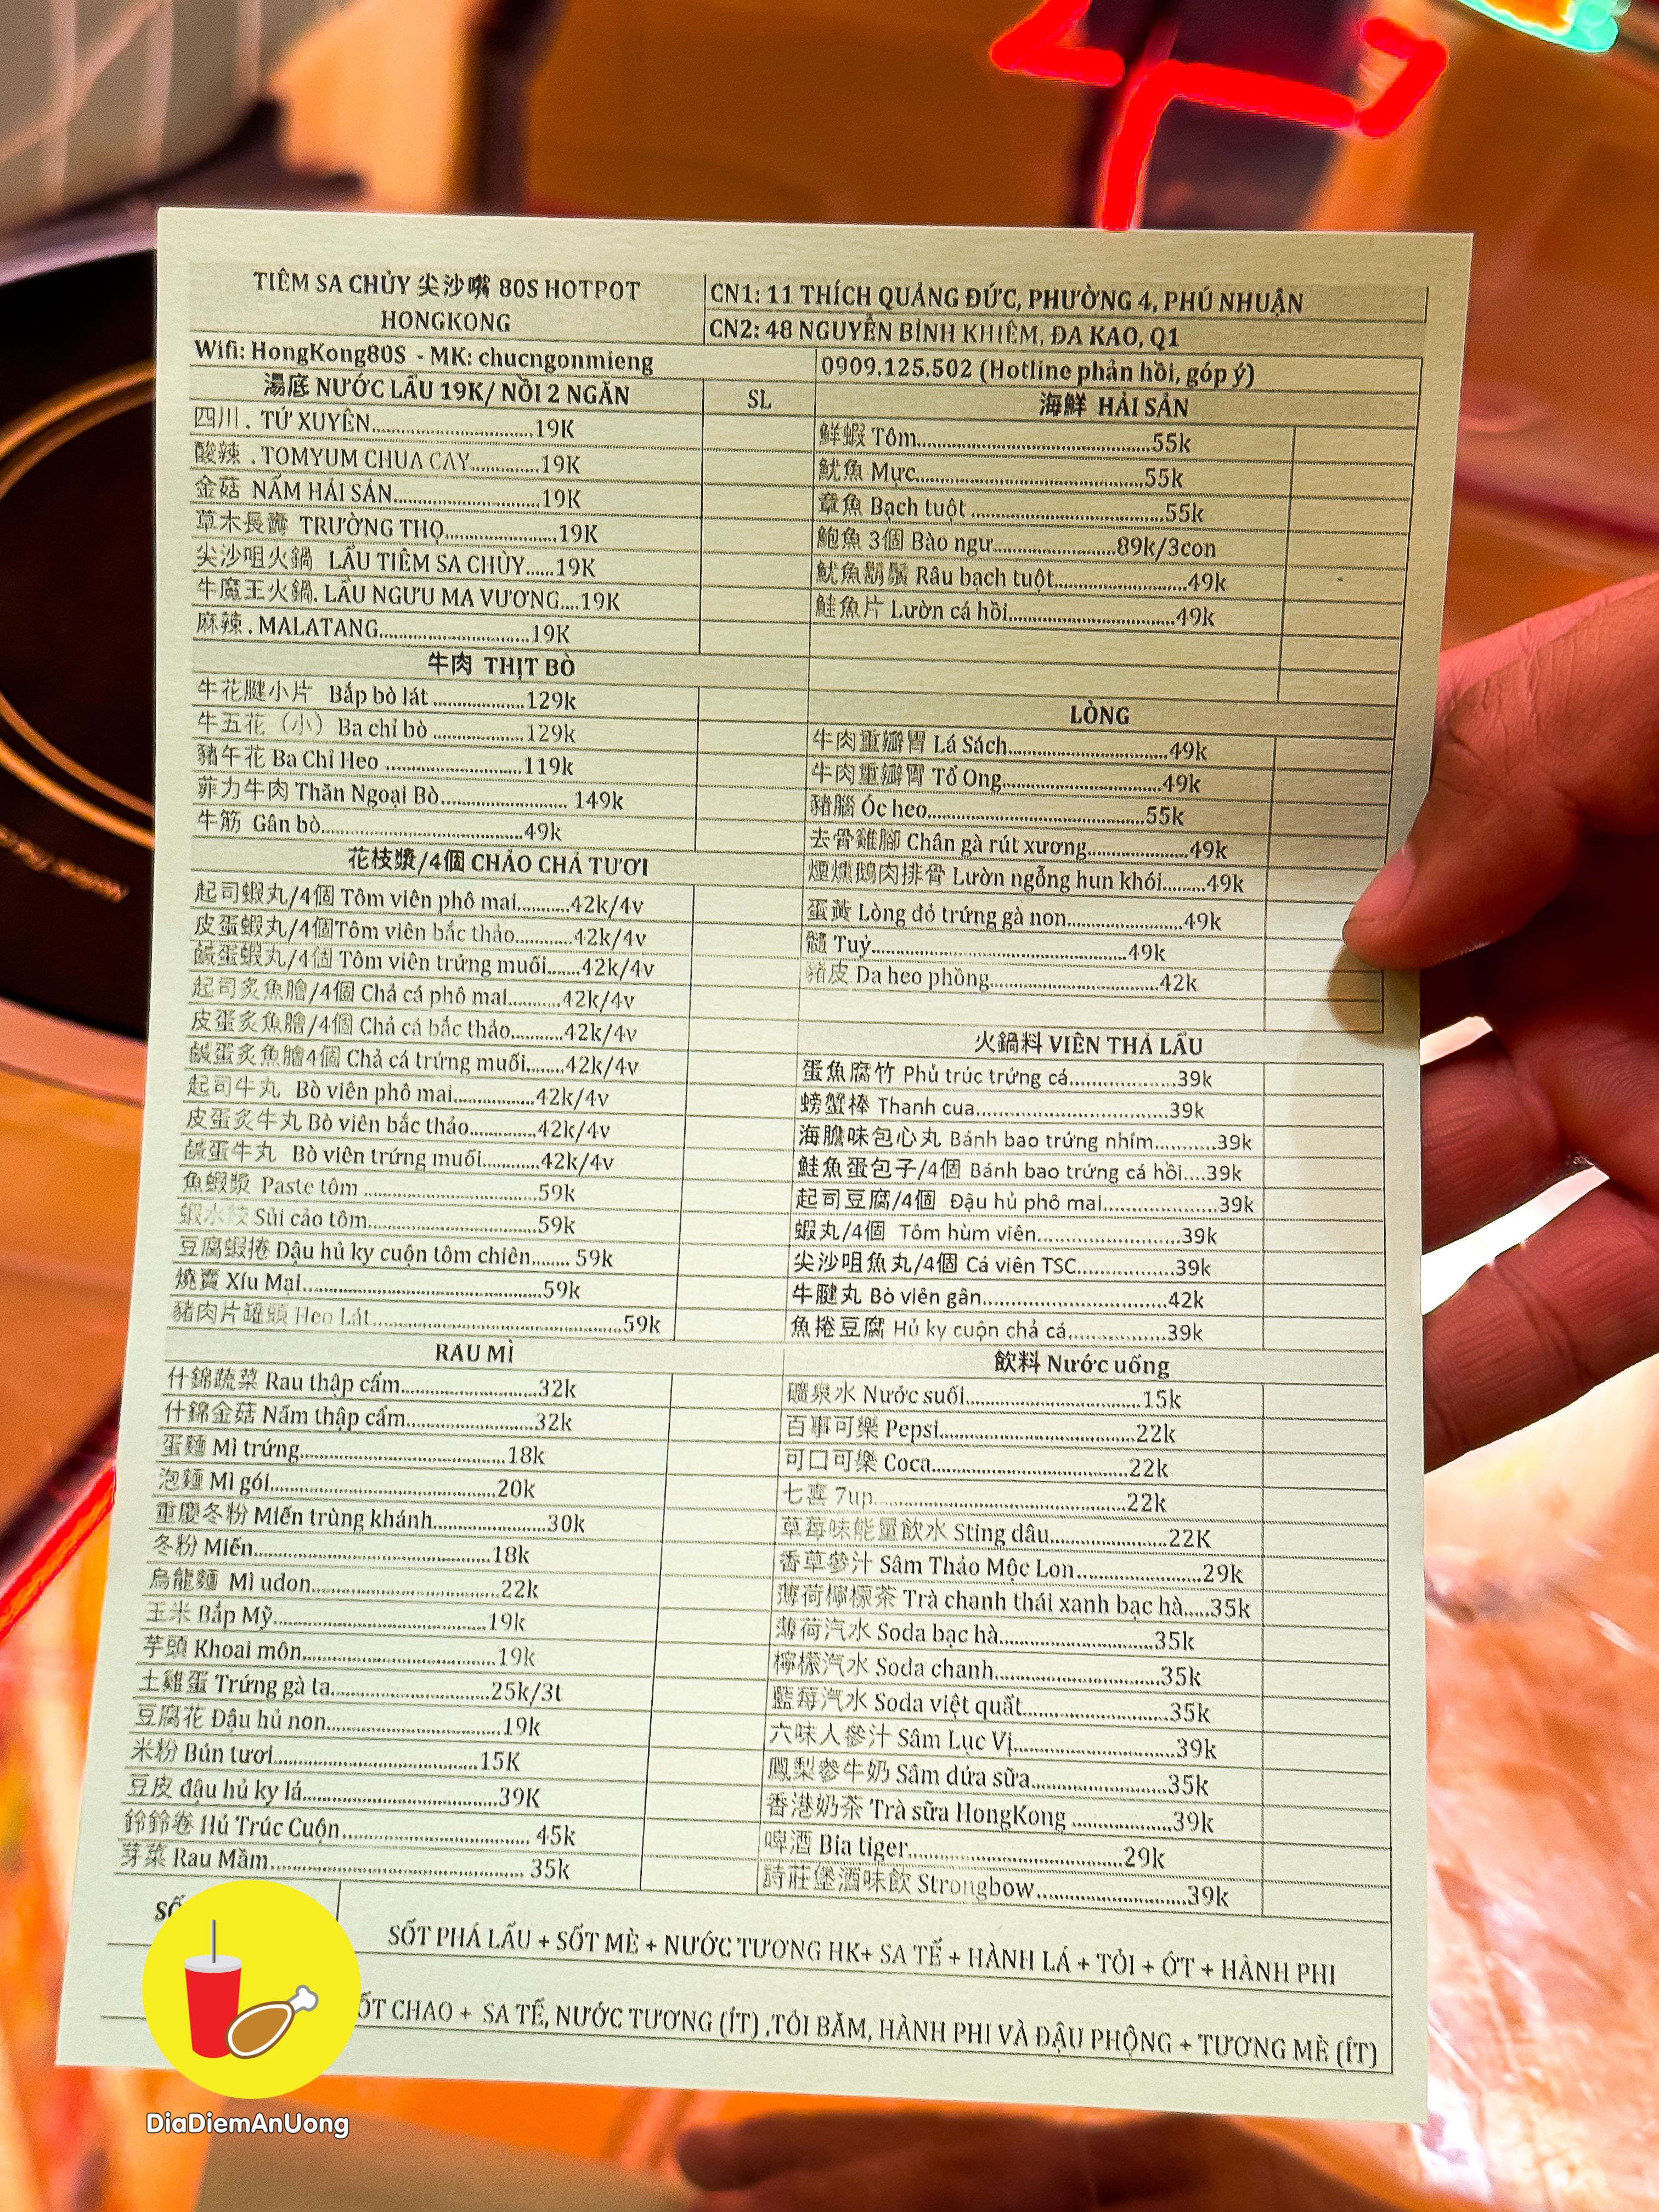 TIÊM SA CHỦY 尖沙嘴 80S HOTPOT
HONGKONG
CN1: 11 THÍCH QUẢNG ĐỨC, PHƯỜNG 4, PHÚ NHUẬN
CN2: 48 NGUYỄN BỈNH KHIÊM, ĐA KAO, Q1
Wifi: HongKong80S - MK: chucngonmieng
0909.125.502 (Hotline phản hồi, góp ý)
湯底 NƯỚC LẨU 19K/ NỒI 2 NGĂN
SL
四川 . TỨ XUYÊN..............................19K
酸辣 . TOMYUM CHUA CAY.............19K
金菇 NẤM HẢI SẢN...........................19K
草木長壽 TRƯỜNG THỌ.....................19K
尖沙咀火鍋 LẨU TIÊM SA CHỦY......19K
牛魔王火鍋. LẨU NGƯU MA VƯƠNG....19K
麻辣 . MALATANG............................19K
牛肉 THỊT BÒ
牛花腱小片 Bắp bò lát .................129k
牛五花（小）Ba chỉ bò .................129k
豬午花 Ba Chỉ Heo .........................119k
菲力牛肉 Thăn Ngoại Bò....................... 149k
牛筋 Gân bò.....................................49k
花枝漿/4個 CHẢO CHẢ TƯƠI
起司蝦丸/4個 Tôm viên phô mai..........42k/4v
皮蛋蝦丸/4個Tôm viên bắc thảo...........42k/4v
鹹蛋蝦丸/4個 Tôm viên trứng muối......42k/4v
起司炙魚膾/4個 Chả cá phô mai..........42k/4v
皮蛋炙魚膾/4個 Chả cá bắc thảo..........42k/4v
鹹蛋炙魚膾4個 Chả cá trứng muối.......42k/4v
起司牛丸 Bò viên phô mai...............42k/4v
皮蛋炙牛丸 Bò viên bắc thảo............42k/4v
鹹蛋牛丸 Bò viên trứng muối...........42k/4v
魚蝦漿 Paste tôm ................................59k
蝦水餃 Sủi cảo tôm...............................59k
豆腐蝦捲 Đậu hủ ky cuộn tôm chiên........ 59k
燒賣 Xíu Mại............................................59k
豬肉片罐頭 Heo Lát..............................................59k
RAU MÌ
什錦蔬菜 Rau thập cẩm.........................32k
什錦金菇 Nấm thập cẩm........................32k
蛋麵 Mì trứng.......................................18k
泡麵 Mì gói..........................................20k
重慶冬粉 Miến trùng khánh....................30k
冬粉 Miến...........................................18k
烏龍麵 Mì udon..................................22k
玉米 Bắp Mỹ.......................................19k
芋頭 Khoai môn...................................19k
土雞蛋 Trứng gà ta............................25k/3t
豆腐花 Đậu hủ non...............................19k
米粉 Bún tươi.....................................15K
豆皮 đậu hủ ky lá.......................................39K
鈴鈴卷 Hủ Trúc Cuộn................................. 45k
芽菜 Rau Mầm............................................. 35k
海鮮 HẢI SẢN
鮮蝦 Tôm...............................................55k
魷魚 Mực...............................................55k
章魚 Bạch tuột .......................................55k
鮑魚 3個 Bào ngư......................89k/3con
魷魚鬍鬚 Râu bạch tuột.......................49k
鮭魚片 Lườn cá hồi..............................49k
LÒNG
牛肉重瓣胃 Lá Sách.............................49k
牛肉重瓣胃 Tổ Ong.............................49k
豬腦 Óc heo.......................................55k
去骨雞腳 Chân gà rút xương...................49k
煙燻鵝肉排骨 Lườn ngỗng hun khói........49k
蛋黃 Lòng đỏ trứng gà non.....................49k
髓 Tuỷ..............................................49k
豬皮 Da heo phồng...............................42k
火鍋料 VIÊN THẢ LẨU
蛋魚腐竹 Phủ trúc trứng cá....................39k
螃蟹棒 Thanh cua.................................39k
海膽味包心丸 Bánh bao trứng nhím..........39k
鮭魚蛋包子/4個 Bánh bao trứng cá hồi....39k
起司豆腐/4個 Đậu hủ phô mai...................39k
蝦丸/4個 Tôm hùm viên.........................39k
尖沙咀魚丸/4個 Cá viên TSC.....................39k
牛腱丸 Bò viên gân.................................42k
魚捲豆腐 Hủ ky cuộn chả cá..................39k
飲料 Nước uống
礦泉水 Nước suối................................15k
百事可樂 Pepsi....................................22k
可口可樂 Coca....................................22k
七喜 7up..............................................22k
草莓味能量飲水 Sting dâu......................22K
香草參汁 Sâm Thảo Mộc Lon.......................29k
薄荷檸檬茶 Trà chanh thái xanh bạc hà.....35k
薄荷汽水 Soda bạc hà............................35k
檸檬汽水 Soda chanh..............................35k
藍莓汽水 Soda việt quất...........................35k
六味人參汁 Sâm Lục Vị.............................39k
鳳梨參牛奶 Sâm dứa sữa.........................35k
香港奶茶 Trà sữa HongKong ..................39k
啤酒 Bia tiger.......................................29k
詩莊堡酒味飲 Strongbow...........................39k
SỐT PHÁ LẤU + SỐT MÈ + NƯỚC TƯƠNG HK+ SA TẾ + HÀNH LÁ + TỎI + ỚT + HÀNH PHI
ỐT CHAO + SA TẾ, NƯỚC TƯƠNG (ÍT) ,TỎI BĂM, HÀNH PHI VÀ ĐẬU PHỘNG + TƯƠNG MÈ (ÍT)
DiaDiemAnUong